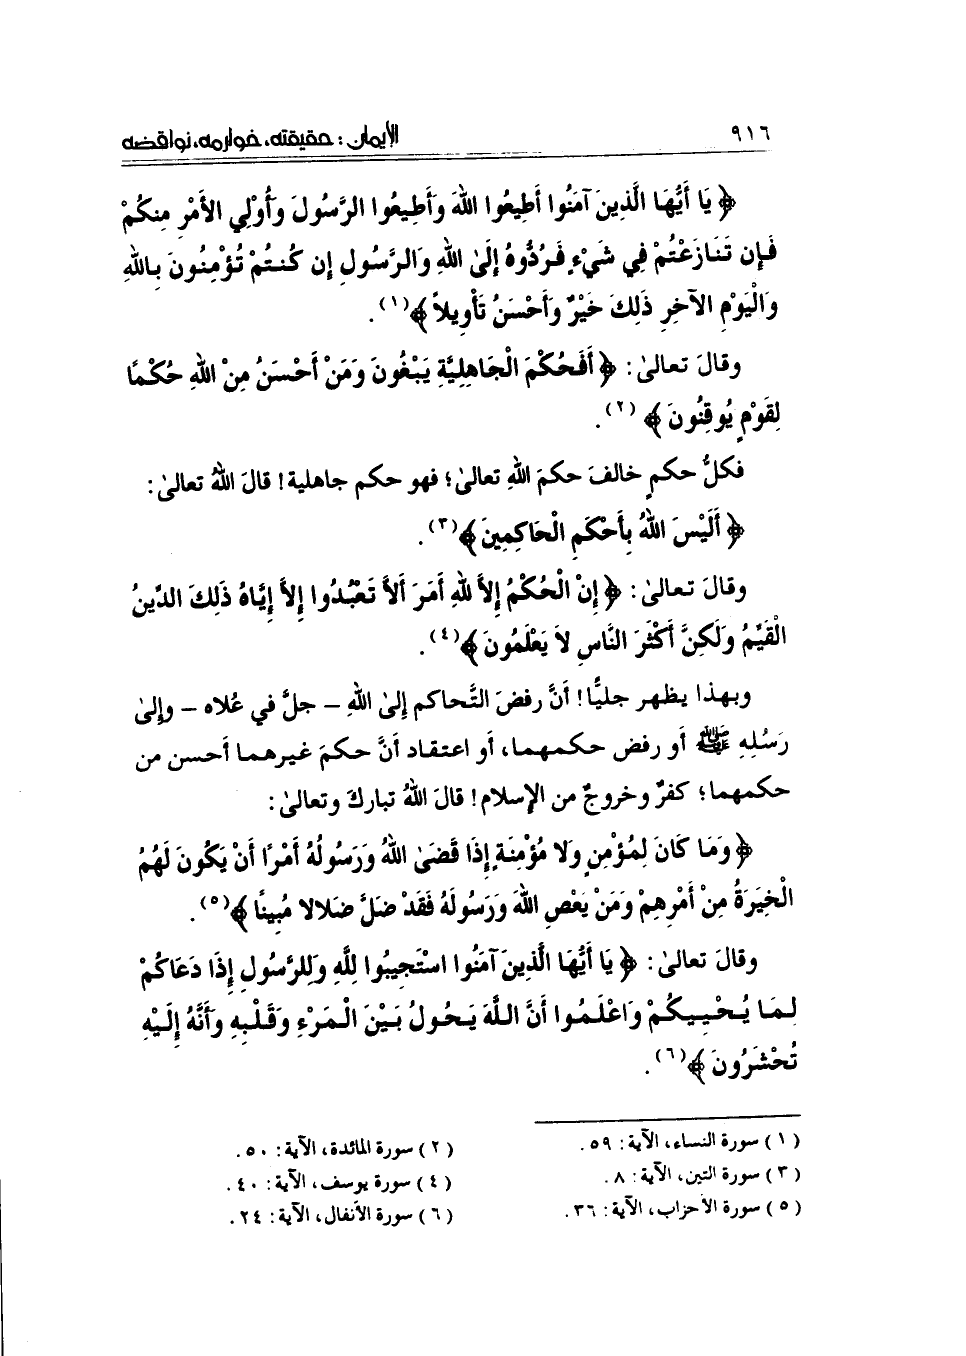 ٩١٦
الإيمان: حقيقته، خوارمه، نواقضه
﴿ يَا أَيُّهَا الَّذِينَ آمَنُوا أَطِيعُوا اللهَ وَأَطِيعُوا الرَّسُولَ وَأُوْلِي الأَمْرِ مِنكُمْ
فَإِن تَنَازَعْتُمْ فِي شَيْءٍ فَرُدُّوهُ إِلَىٰ اللهِ وَالرَّسُولِ إِن كُنتُمْ تُؤْمِنُونَ بِاللهِ
وَالْيَوْمِ الآخِرِ ذَلِكَ خَيْرٌ وَأَحْسَنُ تَأْوِيلاً ﴾(١).
وقالَ تعالىٰ: ﴿ أَفَحُكْمَ الْجَاهِلِيَّةِ يَبْغُونَ وَمَنْ أَحْسَنُ مِنْ اللهِ حُكْمًا
لِقَوْمٍ يُوقِنُونَ ﴾ (٢).
فكلُّ حكمٍ خالفَ حكمَ اللهِ تعالىٰ؛ فهو حكم جاهلية! قالَ اللهُ تعالىٰ:
﴿ أَلَيْسَ اللهُ بِأَحْكَمِ الْحَاكِمِينَ ﴾(٣).
وقالَ تعالىٰ: ﴿ إِنْ الْحُكْمُ إِلاَّ لِلَّهِ أَمَرَ أَلاَّ تَعْبُدُوا إِلاَّ إِيَّاهُ ذَلِكَ الدِّينُ
الْقَيِّمُ وَلَكِنَّ أَكْثَرَ النَّاسِ لاَ يَعْلَمُونَ ﴾(٤).
وبهذا يظهر جليًّا! أنَّ رفضَ التَّحاكم إِلىٰ اللهِ - جلَّ في عُلاه - وإِلىٰ
رَسُلِهِ ﷺ أو رفض حكمهما، أو اعتقاد أنَّ حكمَ غيرهما أحسن من
حكمهما؛ كفرٌ وخروجٌ من الإسلام! قالَ اللهُ تباركَ وتعالىٰ:
﴿ وَمَا كَانَ لِمُؤْمِنٍ وَلا مُؤْمِنَةٍ إِذَا قَضَىٰ اللهُ وَرَسُولُهُ أَمْرًا أَنْ يَكُونَ لَهُمُ
الْخِيَرَةُ مِنْ أَمْرِهِمْ وَمَنْ يَعْصِ اللهَ وَرَسُولَهُ فَقَدْ ضَلَّ ضَلالا مُبِينًا ﴾(٥).
وقالَ تعالىٰ: ﴿ يَا أَيُّهَا الَّذِينَ آمَنُوا اسْتَجِيبُوا لِلَّهِ وَلِلرَّسُولِ إِذَا دَعَاكُمْ
لِمَا يُحْيِيكُمْ وَاعْلَمُوا أَنَّ اللَّهَ يَحُولُ بَيْنَ الْمَرْءِ وَقَلْبِهِ وَأَنَّهُ إِلَيْهِ
تُحْشَرُونَ ﴾(٦).
(١) سورة النساء، الآية: ٥٩.
(٢) سورة المائدة، الآية: ٥٠.
(٣) سورة التين، الآية: ٨.
(٤) سورة يوسف، الآية: ٤٠.
(٥) سورة الأحزاب، الآية: ٣٦.
(٦) سورة الأنفال، الآية: ٢٤.